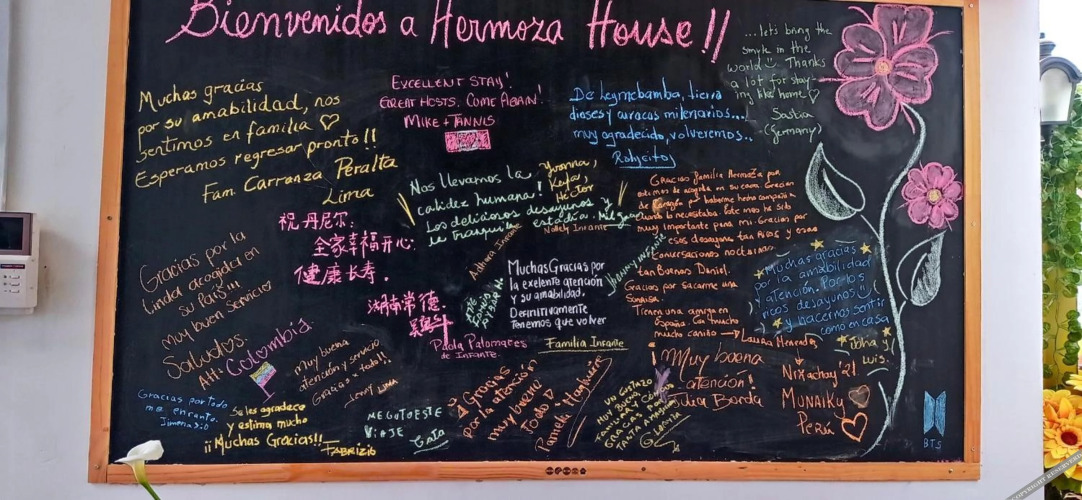 Bienvenidos a Hermoza House!!
Muchas gracias
por su amabilidad, nos
sentimos en familia ♡
Esperamos regresar pronto!!
Fam. Carranza Peralta
Lima
EXCELLENT STAY!
GREAT HOSTS. COME AGAIN!
MIKE + TANNIS
De Leymebamba, tierra
dioses y curacas milenarios...
muy agradecido, volveremos..
...let's bring the
smyle in the
world ☺ Thanks
a lot for stay-
ing like home ♡
Saskia
(Germany)
Nos llevamos la
calidez humana!
Los deliciosos desayunos y
la tranquila estadía. Mil
Yvonna,
Keyla,
Héctor
Nallely Infante
祝丹尼尔:
全家幸福开心:
健康长寿.
湖南常德
Gracias por la
linda acogida en
su País!!!
Muy buen servicio
Saludos.
Att: Colombia
Gracias familia Hermoza por
de corazón por haberme hecho compañía
cuando lo necesitaba. Este mes ha sido
muy importante para mi. Gracias por
esos desayunos tan ricos y esas
conversaciones nocturnas
tan buenas Daniel.
Gracias por sacarme una
sonrisa.
Tienen una amiga en
España. Con mucho
mucho cariño → Laura Menendez
Adriana Infante
Muchas Gracias por
la exelente atención
y su amabilidad.
Definitivamente
Tenemos que volver
Familia Infante
Paola Palomares
de Infante.
Muchas gracias
por la amabilidad
y atención. Por los
ricos desayunos ☺
y hacernos sentir
como en casa
Jhha y
Luis.
muy buena
atención y servicio
Gracias x todo!!
Jenny Lima
Gracias por todo
me encanto.
Jimena
Se les agradece
y estima mucho
¡¡Muchas Gracias!!
FABRIZIO
ME GUTO ESTE
VIAJE
Gracias
por la atención
muy buena
Todo
Pamela
UN GUSTAZO
Muy buena
atención!
Julia Borda
Nixachay'21
MUNAIKY
Perú
BTS
COPYRIGHT RESERVED